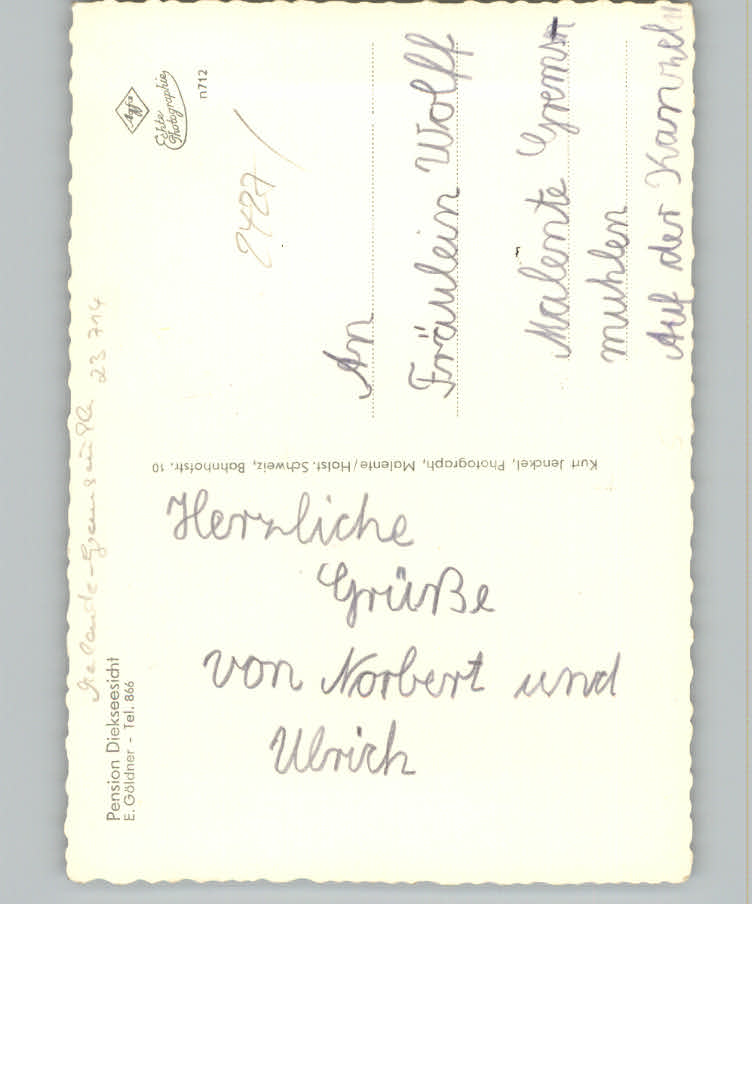 Pension Diekseesicht
E. Göldner - Tel. 866
23 714
Herzliche
Grüße
von Norbert und
Ulrich
Kurt Jenckel, Photograph, Malente/Holst. Schweiz, Bahnhofstr. 10
Agfa
Echte
Photographie
n712
2427
An
Fräulein Wolff
Malente Gremsn
muhlen
Auf der